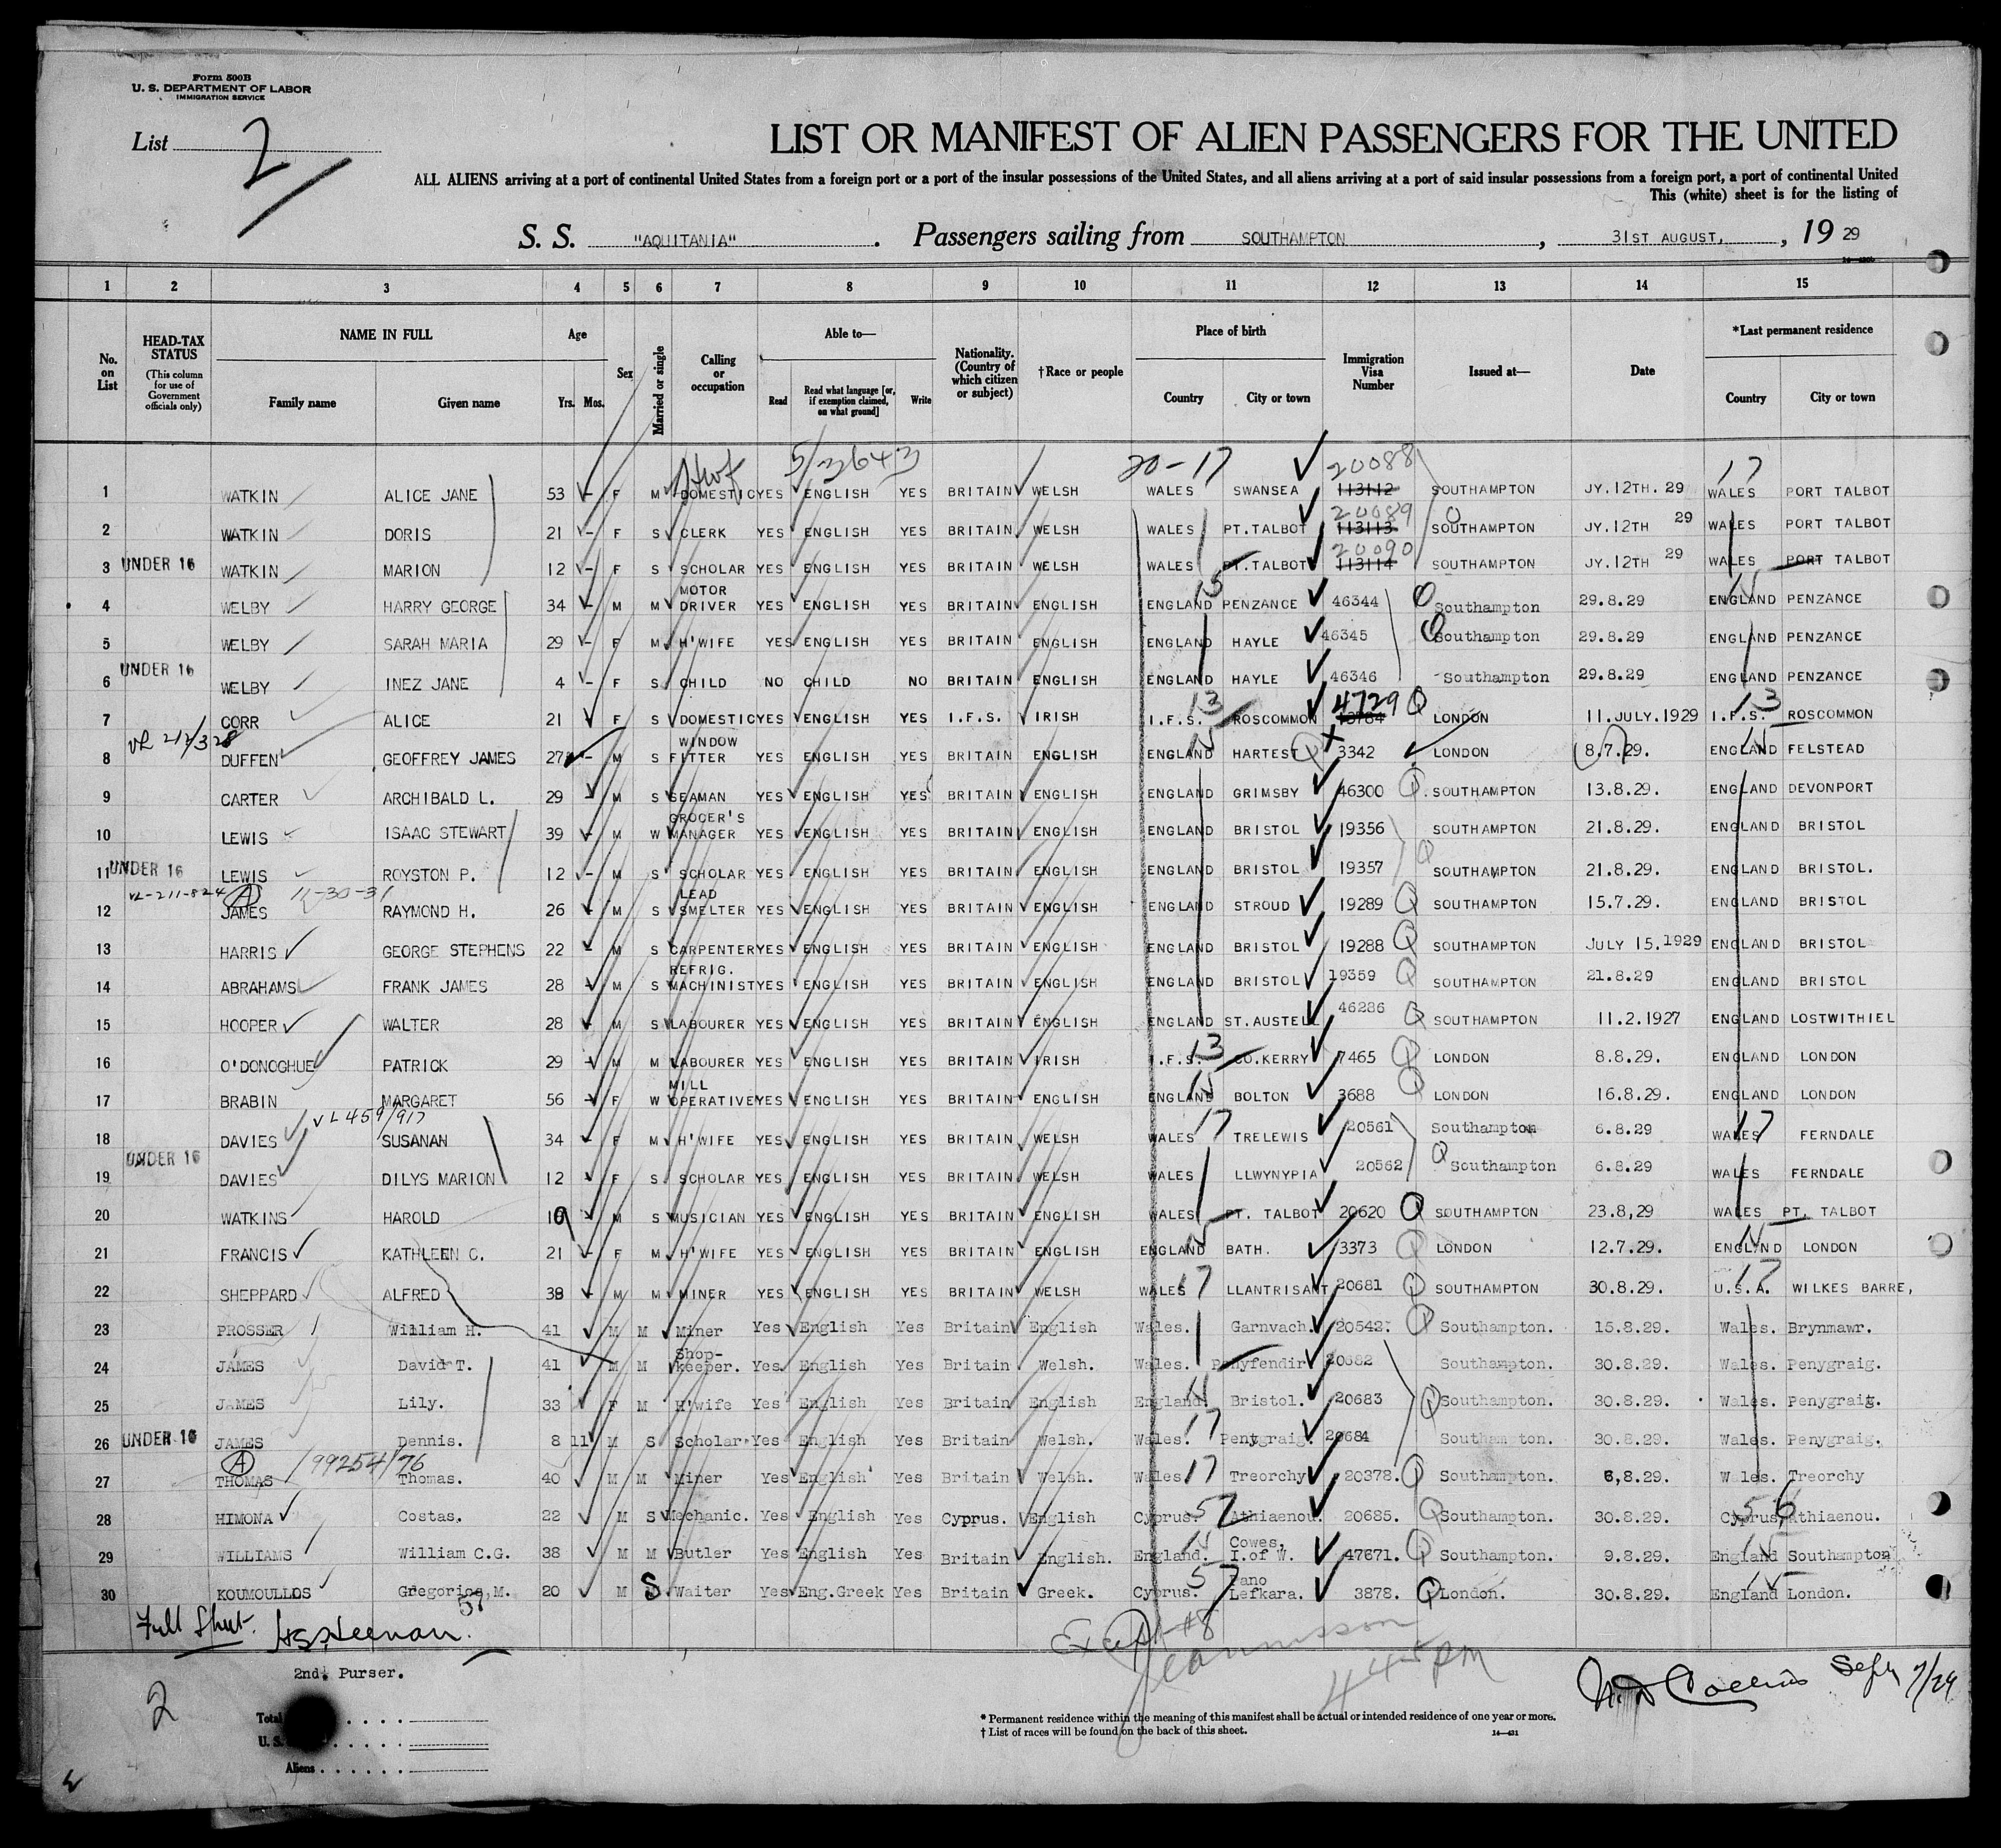 Form 500B
U. S. DEPARTMENT OF LABOR
IMMIGRATION SERVICE
List 2
LIST OR MANIFEST OF ALIEN PASSENGERS FOR THE UNITED
ALL ALIENS arriving at a port of continental United States from a foreign port or a port of the insular possessions of the United States, and all aliens arriving at a port of said insular possessions from a foreign port, a port of continental United
This (white) sheet is for the listing of
S. S. "AQUITANIA" . Passengers sailing from SOUTHAMPTON , 31ST AUGUST, , 19 29
1 2 3 4 5 6 7 8 9 10 11 12 13 14 15
No. on List HEAD-TAX STATUS (This column for use of Government officials only) NAME IN FULL Family name Given name Age Yrs. Mos. Sex Married or single Calling or occupation Able to— Read Read what language [or, if exemption claimed, on what ground] Write Nationality. (Country of which citizen or subject) †Race or people Place of birth Country City or town Immigration Visa Number Issued at— Date *Last permanent residence Country City or town
20-17 20088 17
1 WATKIN ALICE JANE 53 - F M DOMESTIC YES ENGLISH YES BRITAIN WELSH WALES SWANSEA 113112 SOUTHAMPTON JY.12TH.29 WALES PORT TALBOT
20089
2 WATKIN DORIS 21 - F S CLERK YES ENGLISH YES BRITAIN WELSH WALES PT.TALBOT 113113 SOUTHAMPTON JY.12TH 29 WALES PORT TALBOT
20090
3 UNDER 16 WATKIN MARION 12 - F S SCHOLAR YES ENGLISH YES BRITAIN WELSH WALES PT.TALBOT 113114 SOUTHAMPTON JY.12TH 29 WALES PORT TALBOT
4 WELBY HARRY GEORGE 34 - M M MOTOR DRIVER YES ENGLISH YES BRITAIN ENGLISH ENGLAND PENZANCE 46344 Southampton 29.8.29 ENGLAND PENZANCE
5 WELBY SARAH MARIA 29 - F M H'WIFE YES ENGLISH YES BRITAIN ENGLISH ENGLAND HAYLE 46345 Southampton 29.8.29 ENGLAND PENZANCE
6 UNDER 16 WELBY INEZ JANE 4 - F S CHILD NO CHILD NO BRITAIN ENGLISH ENGLAND HAYLE 46346 Southampton 29.8.29 ENGLAND PENZANCE
7 CORR ALICE 21 F S DOMESTIC YES ENGLISH YES I.F.S. IRISH I.F.S. 13 ROSCOMMON 4729 LONDON 11.JULY.1929 I.F.S. 13 ROSCOMMON
8 DUFFEN GEOFFREY JAMES 27 - M S WINDOW FITTER YES ENGLISH YES BRITAIN ENGLISH ENGLAND HARTEST 3342 LONDON 8.7.29. ENGLAND FELSTEAD
9 CARTER ARCHIBALD L. 29 - M S SEAMAN YES ENGLISH YES BRITAIN ENGLISH ENGLAND GRIMSBY 46300 SOUTHAMPTON 13.8.29. ENGLAND DEVONPORT
10 LEWIS ISAAC STEWART 39 - M W GROCER'S MANAGER YES ENGLISH YES BRITAIN ENGLISH ENGLAND BRISTOL 19356 SOUTHAMPTON 21.8.29. ENGLAND BRISTOL
11 UNDER 16 LEWIS ROYSTON P. 12 - M S SCHOLAR YES ENGLISH YES BRITAIN ENGLISH ENGLAND BRISTOL 19357 SOUTHAMPTON 21.8.29. ENGLAND BRISTOL.
VL-211-824 A 11-30-31
12 JAMES RAYMOND H. 26 - M S LEAD SMELTER YES ENGLISH YES BRITAIN ENGLISH ENGLAND STROUD 19289 SOUTHAMPTON 15.7.29. ENGLAND BRISTOL
13 HARRIS GEORGE STEPHENS 22 - M S CARPENTER YES ENGLISH YES BRITAIN ENGLISH ENGLAND BRISTOL 19288 SOUTHAMPTON JULY 15.1929 ENGLAND BRISTOL
14 ABRAHAMS FRANK JAMES 28 - M S REFRIG. MACHINIST YES ENGLISH YES BRITAIN ENGLISH ENGLAND BRISTOL 19359 SOUTHAMPTON 21.8.29 ENGLAND BRISTOL
15 HOOPER WALTER 28 - M S LABOURER YES ENGLISH YES BRITAIN ENGLISH ENGLAND ST.AUSTELL 46286 SOUTHAMPTON 11.2.1927 ENGLAND LOSTWITHIEL
16 O'DONOGHUE PATRICK 29 - M M LABOURER YES ENGLISH YES BRITAIN IRISH I.F.S. 13 CO.KERRY 7465 LONDON 8.8.29. ENGLAND LONDON
17 BRABIN MARGARET 56 - F W MILL OPERATIVE YES ENGLISH YES BRITAIN ENGLISH ENGLAND BOLTON 3688 LONDON 16.8.29. ENGLAND LONDON
VL459/917
18 DAVIES SUSANAN 34 - F M H'WIFE YES ENGLISH YES BRITAIN WELSH WALES 17 TRELEWIS 20561 Southampton 6.8.29 WALES 17 FERNDALE
19 UNDER 16 DAVIES DILYS MARION 12 - F S SCHOLAR YES ENGLISH YES BRITAIN WELSH WALES LLWYNYPIA 20562 Southampton 6.8.29 WALES FERNDALE
20 WATKINS HAROLD 19 - M S MUSICIAN YES ENGLISH YES BRITAIN ENGLISH WALES PT. TALBOT 20620 SOUTHAMPTON 23.8,29 WALES PT. TALBOT
21 FRANCIS KATHLEEN C. 21 - F M H'WIFE YES ENGLISH YES BRITAIN ENGLISH ENGLAND BATH. 3373 LONDON 12.7.29. ENGLAND LONDON
22 SHEPPARD ALFRED 38 - M M MINER YES ENGLISH YES BRITAIN WELSH WALES 17 LLANTRISANT 20681 SOUTHAMPTON 30.8.29. U.S.A. 17 WILKES BARRE,
23 PROSSER William H. 41 M M Miner Yes English Yes Britain English Wales. Garnvach. 20542. Southampton. 15.8.29. Wales. Brynmawr.
24 JAMES David T. 41 M M Shop-keeper. Yes. English Yes Britain Welsh. Wales. Penyfendir 20682 Southampton. 30.8.29. Wales. Penygraig.
25 JAMES Lily. 33 F M H'wife Yes English Yes Britain English England. Bristol. 20683 Southampton. 30.8.29. Wales. Penygraig.
26 UNDER 16 JAMES Dennis. 8 11 M S Scholar. Yes English Yes Britain Welsh. Wales. 17 Penygraig. 20684 Southampton. 30.8.29. Wales. Penygraig.
A 199254/76
27 THOMAS Thomas. 40 M M Miner Yes English Yes Britain Welsh. Wales 17 Treorchy 20378. Southampton. 6,8.29. Wales. Treorchy
28 HIMONA Costas. 22 M S Mechanic. Yes English Yes Cyprus. English Cyprus. 57 Athiaenou. 20685. Southampton. 30.8.29. Cyprus, 56 Athiaenou.
29 WILLIAMS William C.G. 38 M M Butler Yes English Yes Britain English. England. Cowes, I.of W. 47671. Southampton. 9.8.29. England Southampton
30 KOUMOULLOS Gregorios,M. 20 M S Waiter Yes Eng.Greek Yes Britain Greek. Cyprus. 57 Pano Lefkara. 3878. London. 30.8.29. England London.
57
Full Sheet.
Except #8
445 PM
2nd. Purser.
Sept 7/29
2
Total
U. S.
Aliens
* Permanent residence within the meaning of this manifest shall be actual or intended residence of one year or more.
† List of races will be found on the back of this sheet.
14—421